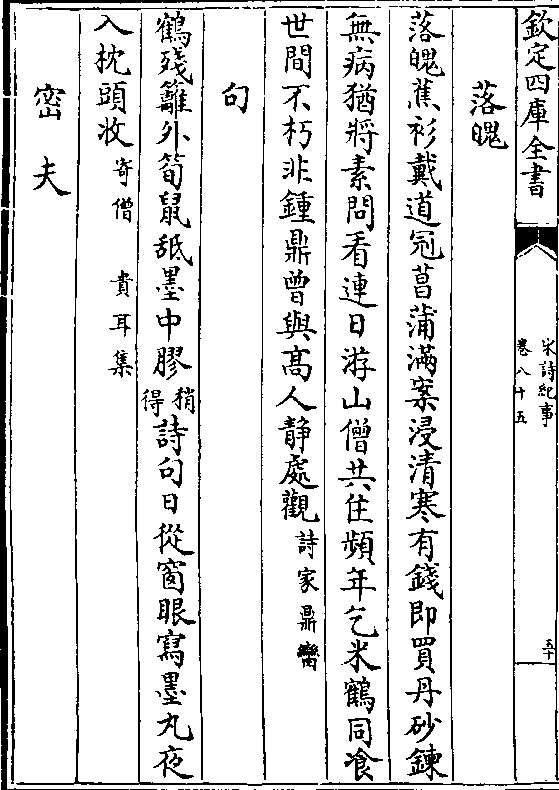 欽定四庫全書
宋詩紀事
卷八十五
五十
落魄
落魄蕉衫戴道冠菖蒲滿案浸清寒有錢即買丹砂鍊
無病猶將素問看連日游山僧共住頻年乞米鶴同飡
世間不朽非鍾鼎曾與髙人静處觀詩家鼎臠
句
鶴殘籬外筍鼠舐墨中膠稍得詩句日從窗眼寫墨丸夜
入枕頭收寄僧 貴耳集
密夫